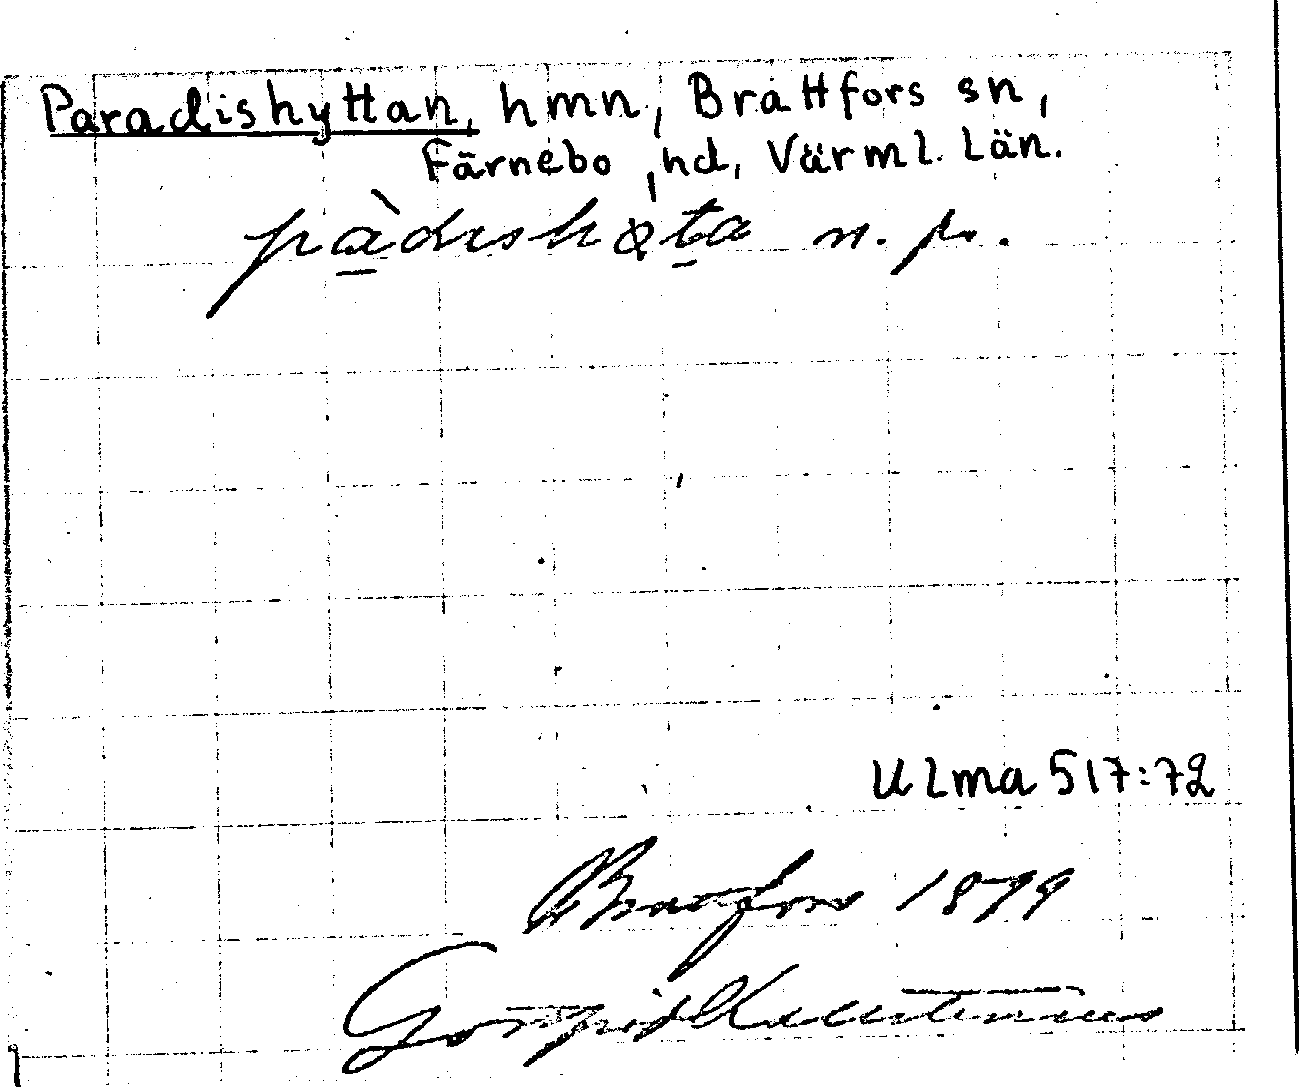 Paradishyttan, hmn, Brattfors sn,
Färnebo hd, Värml. Län.
pàdıshøta n. pr.
Ulma 517:72
Brattfors 1879
Gottfrid Kallstenius